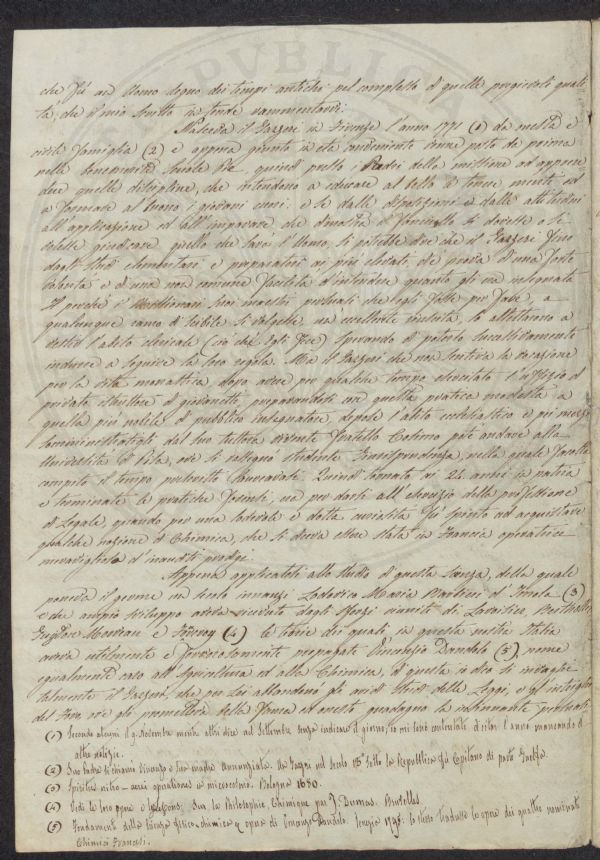 che fù un Uomo degno dei tempi antichi pel complesso di quelle pregievoli quali
tà, che il mio scritto intende rammentarvi:
Nasceva il Gazzeri in Firenze l'anno 1771 (1) da onesta e
civile famiglia (2) e appena giunto in età conveniente venne posto da prima
nelle benemerite Scuole Pie, quindi presso i Padri della missione ad appren
dere quelle discipline, che intendono a educare al bello le tenere menti ed
a formare al buono i giovani cuori: e se dalle disposizioni e dalle attitudini
all'applicazione ed all'imparare, che dimostra il fanciullo si dovesse o po
tesse giudicare quello che sarà l'Uomo, si potrebbe dire che il Gazzeri fino
dagli studi elementari e preparatori ai più elevati diè prova d'una forte
volontà e d'una non comune facilità d'intendere quanto gli era insegnato
Il perchè i Missionari suoi maestri persuasi che egli fosse per fare, a
qualunque ramo di scibile si volgesse un'eccellente riuscita, lo allettarono a
vestir l'abito clericale (ciò che egli fece) sperando di poterlo successivamente
indurre a seguire la loro regola. Ma il Gazzeri che non sentiva la vocazione
per la vita monastica, dopo avere per qualche tempo esercitato l'uffizio di
privato istruttore di giovanetti, preparandosi con quella pratica modesta a
quella più nobile di pubblico insegnatore, depose l'abito ecclesiastico e pei mezzi
somministratigli dal suo tuttora vivente fratello Cosimo potè andare alla
Università di Pisa, ove si rassegnò studente Giurisprudenza, nella quale facoltà
compito il tempo prescritto laureavasi. Quindi tornato ai 24 anni in patria
e terminate le pratiche forensi, era per darsi all'esercizio della professione
di Legale, quando per una lodevole e dotta curiosità fù spinto ad acquistare
qualche nozione di Chimica, che si diceva essere stata in Francia operatrice
meravigliosa d'inauditi prodigi.
Appena applicatosi allo studio di questa scienza, della quale
poneva il germe un secolo innanzi Lodovico Maria Barbieri d'Imola (3)
e che ampio sviluppo aveva ricevuto dagli sforzi riuniti di Lavoisier, Berthollet
Guyton Morveau e Fourcroy (4) le teorie dei quali in questa nostra Italia
aveva utilmente e fervorosamente propagate Vincenzio Dandolo (5) nome
egualmente caro all'Agricoltura ed alla Chimica, di questa io dico si invaghì
talmente il Gazzeri, che per lei abbandonò gli aridi studi delle Leggi, e gl'intrighi
del Foro, ove gli prometteva della fama ed onesto guadagno la rettamente
(1) Secondo alcuni il 9 Novembre mentre altri dice nel Settembre senza indicare il giorno, io mi sono contentato di citar l'anno mancando d'
altre notizie.
(2) Suo Padre si chiamò Vincenzo e sua madre Annunziata. Un Gazzeri nel secolo 13° sotto la Repubblica fù Capitano di parte Guelfa.
(3) Spiritus nitro-aerei operationes in microcosmo. Bologna 1680.
(4) Vedi le loro opere e Leçons, sur la Philosophie Chimique par J. Dumas. Bruxelles
(5) Fondamenti della scienza fisico-chimica, opera di Vincenzo Dandolo. Venezia 1795: lo stesso tradusse le opere dei quattro nominati
Chimici Francesi.